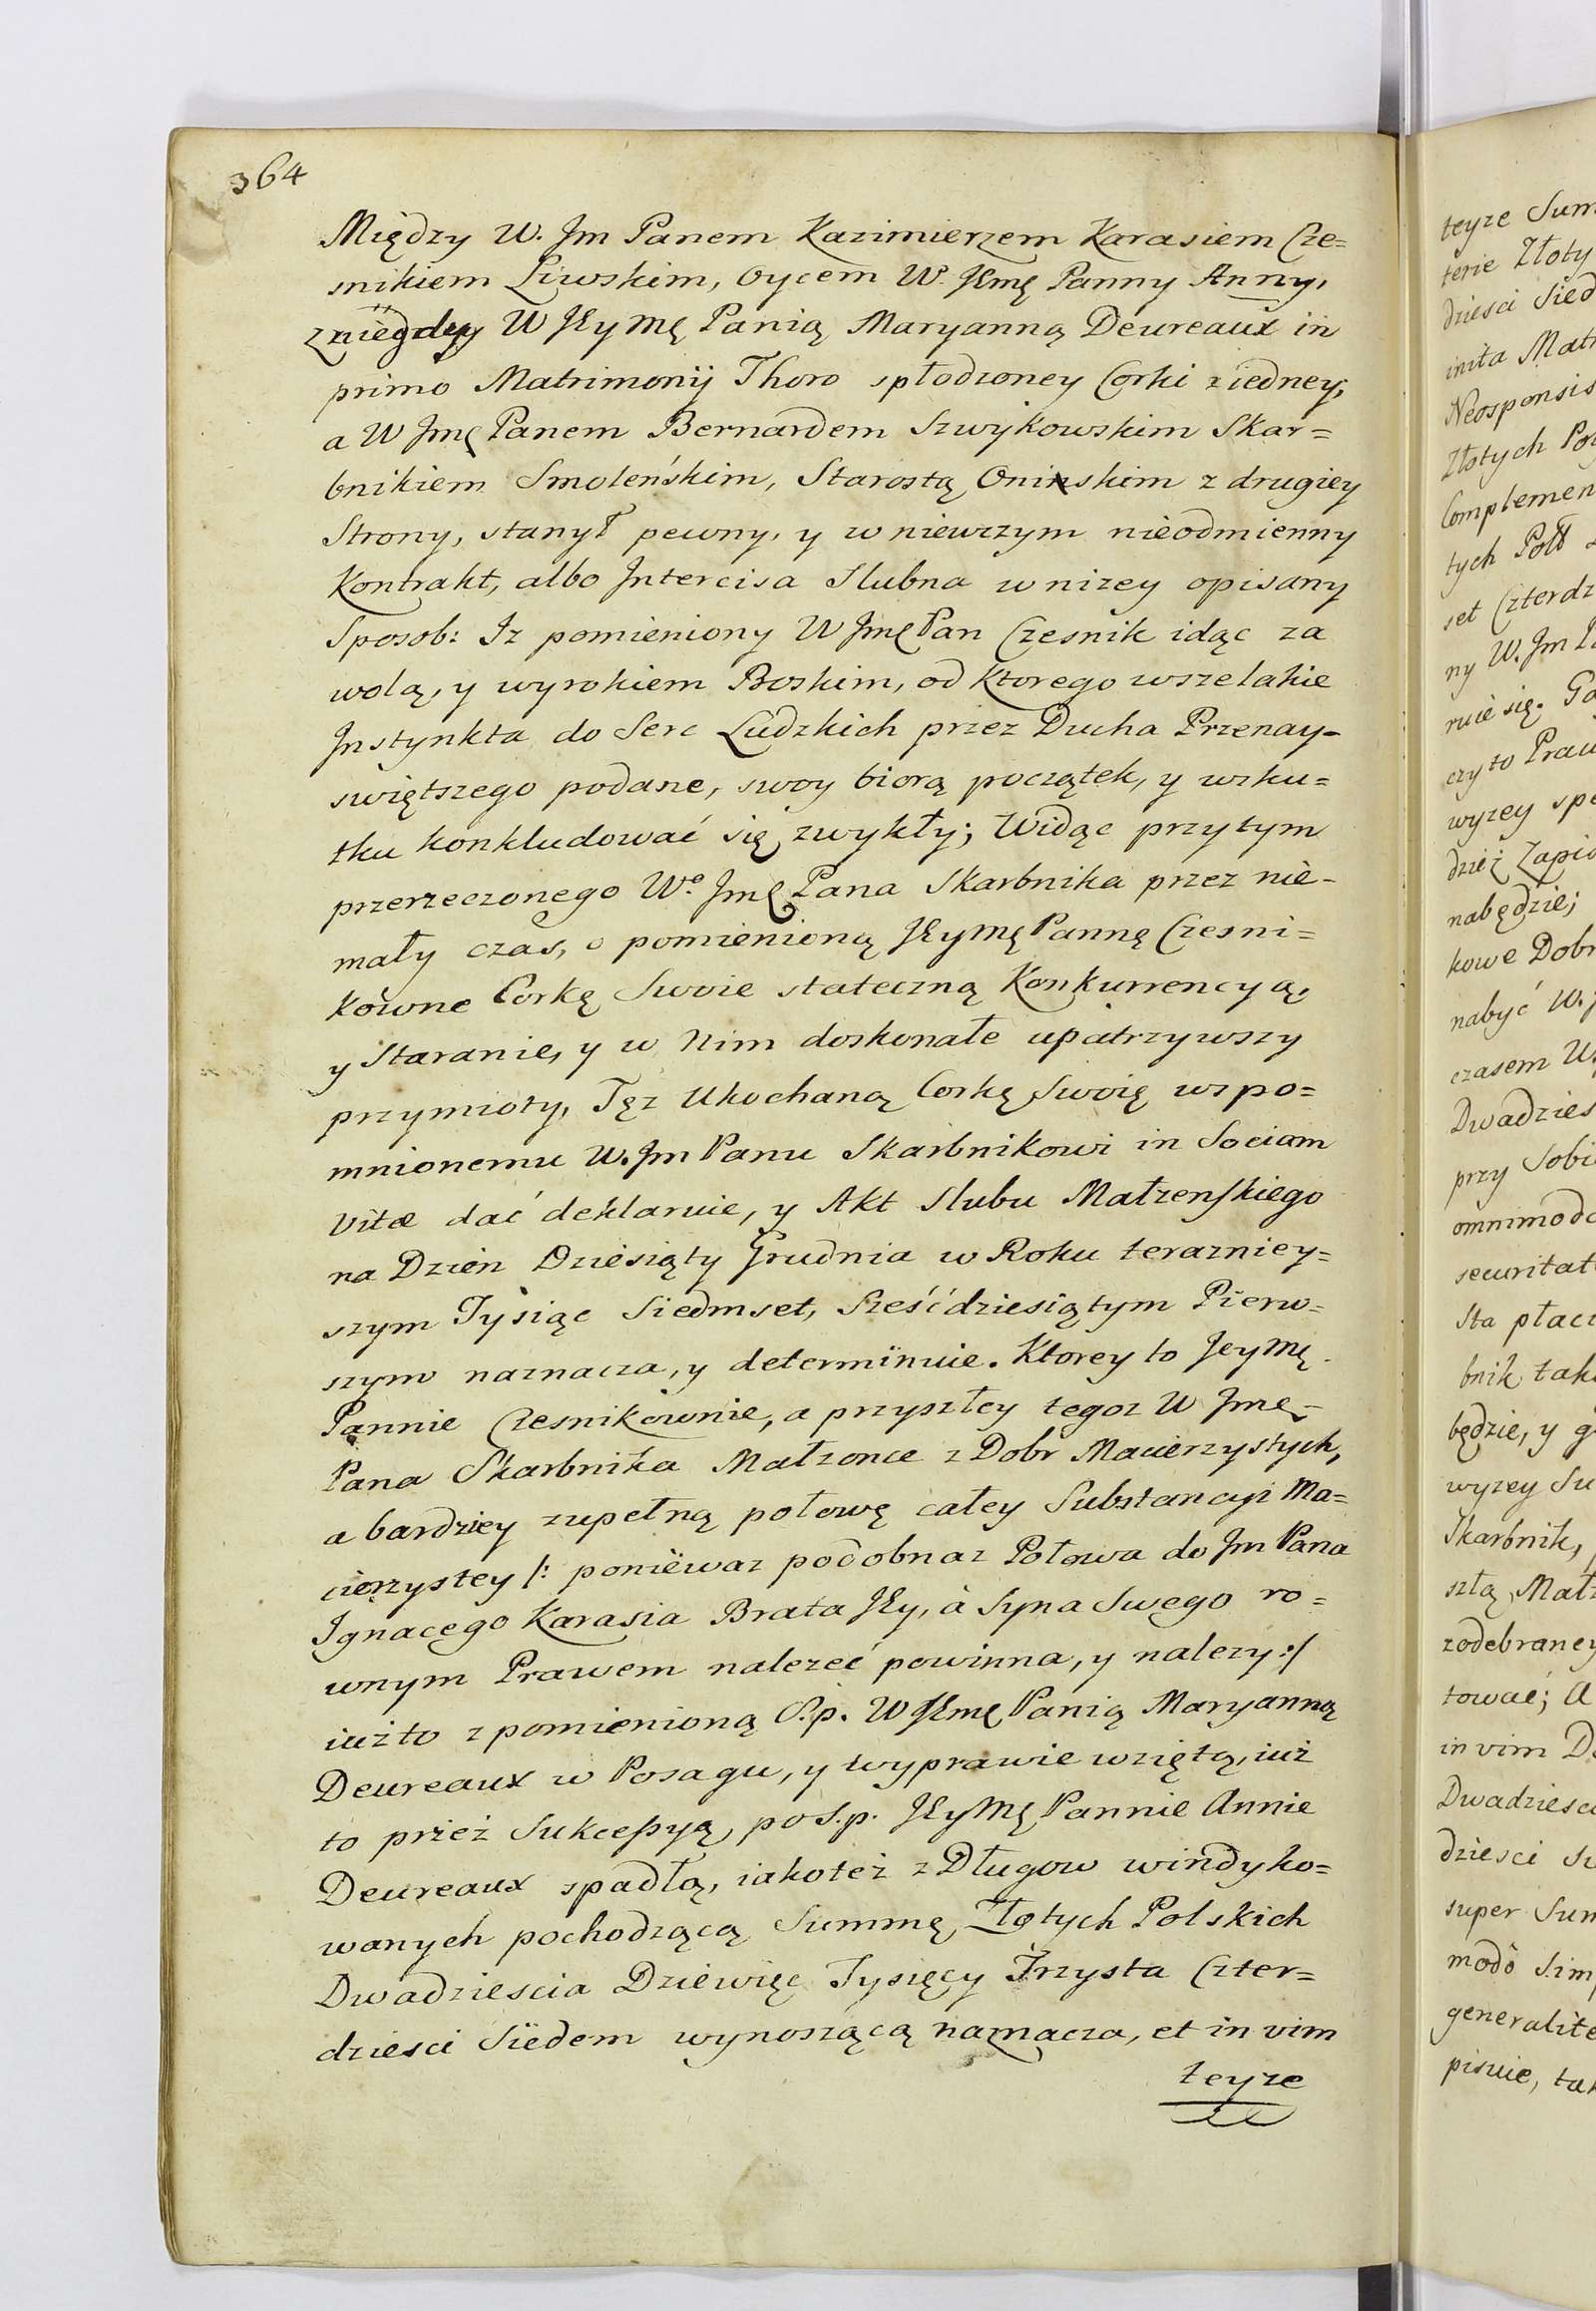 364
Między W. Jm Panem Kazimierzem Karasiem Cze=
snikiem Liwskim, Oycem W. JEmę Panny Anny,
z niegdy W JEy Mę Panią Maryanną Deureaux in
primo Matrimonij Thoro spłodzoney Corki ziedney,
a W Jmę Panem Bernardem Szwykowskim Skar=
bnikiem Smoleńskim, Starostą Oninskim z drugiey
Strony, stanył pewny, y w niewczym nieodmienny
Kontrakt, albo Jntercisa Slubna w nizey opisany
Sposob: Iz pomieniony W Jmę Pan Czesnik idąc za
wolą, y wyrokiem Boskim, od Ktorego wszelakie
Jnstynkta do Serc Ludzkich przez Ducha Przenay=
swiętszego podane, swoy biorą początek, y wsku=
tku konkludować się zwykły; Widąc przytym
przerzeczonego Wo. Jmę Pana Skarbnika przez nie=
mały czas, o pomienioną JEy Mę Pannę Czesni=
kowne Corkę Swoie stateczną Konkurrencyą,
y Staranie, y w Nim doskonałe upatrzywszy
przymioty, Tęz Ukochaną Corkę Swoię wspo=
mnionemu W. Jm Panu Skarbnikowi in Sociam
Vitæ dać deklaruie, y Akt Slubu Małzenskiego
na Dzien Dziesiąty Grudnia w Roku terazniey=
szym Tysiąc Siedmset, Sześćdziesiątym Pierw=
szym naznacza, y determinuie. Ktorey to Jey Mę
Pannie Czesnikownie, a przyszłey tegoz W Jmę
Pana Skarbnika Małzonce z Dobr Macierzystych,
a bardziey zupełną połowę całey Substancyi Ma=
cierzystey /: poniewaz podobnaz Połowa do Jm Pana
Ignacego Karasia Brata JEy, à Syna Swego ro=
wnym Prawem nalezeć powinna, y nalezy :/
iuż to z pomienioną S.p. W JEmę Panią Maryanną
Deureaux w Posagu, y wyprawie wziętą, iuż
to przeż Sukcessyą, po S.p. JEy Mę Pannie Annie
Deureaux spadłą, iakoteż z Długow windyko=
wanych pochodzącą Summę Złotych Polskich
Dwadziescia Dziewięc Tysięcy Trzysta Czter=
dziesci Siedem wynoszącą naznacza, et in vim
teyze
teyze Sum
terie Złoty
dziesci Sied
inita Matr
Neosponsis
Złotych Pol
Complemen
tych Poll
set Czterdz
ny W. Jm
ruie się.
czyto Praw
wyzey spe
dzież Zapi
nabędzie;
kowe Dobr
nabyć W.
czasem W
Dwadzies
przy Sobi
omnimodo
securitat
Sta płacz
bnik tak
będzie, y g
wyzey Su
Skarbnik,
szłą Małz
zodebraney
tować; A
in vim D
Dwadziesc
dziesci S
super Sum
modò Sim
generalite
pisuie, tak